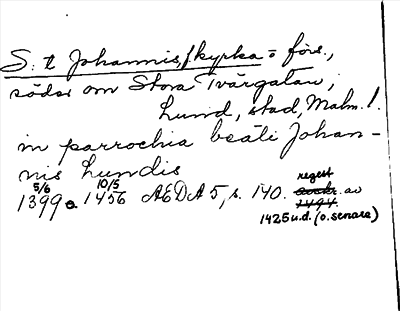 S:t Johannis, kyrka = förs.,
söder om Stora Tvärgatan,
Lund, stad, Malm. l.
in parrochia beati Johan-
nis Lundis
5/6 10/5 regest
1399 o 1456 AEDA 5, s. 140. avskr. av
1494.
1425 u.d. (o. senare)